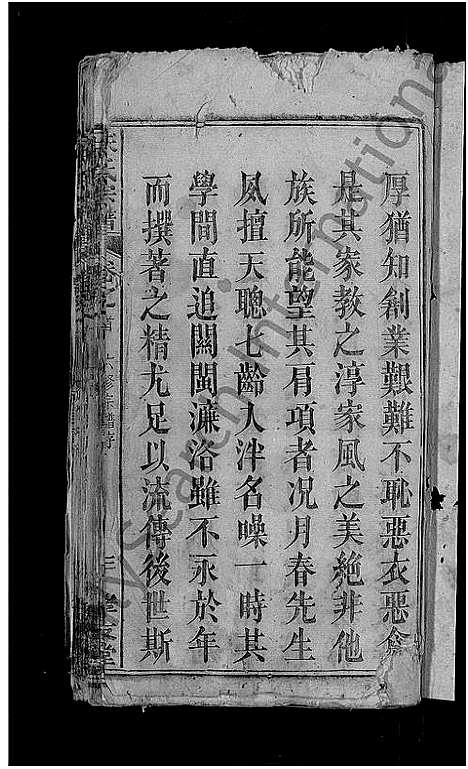 厚猶知創業艱難不恥惡衣惡食
是其家教之淳家風之美絕非他
族所能望其肩項者况月春先生
夙擅天聰七齡入泮名噪一時其
學問直追關閩濂洛雖不永於年
而撰著之精尤足以流傳後世斯
氏宗譜 卷之首
堂